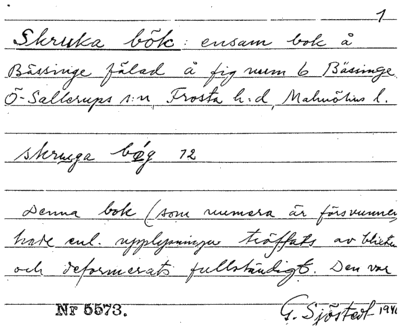 1
Skruka bök: ensam bok å
Bässinge fälad å fig num 6 Bäsinge
Ö-Sallerups s:n, Frosta h:d, Malmöhus l.
skruga bög 12
Denna bok (som numera är försvunnen
hade enl. upplysningar träffats av blixten
och deformerats fullständigt. Den var
NF 5573.
G. Sjöstedt 1940